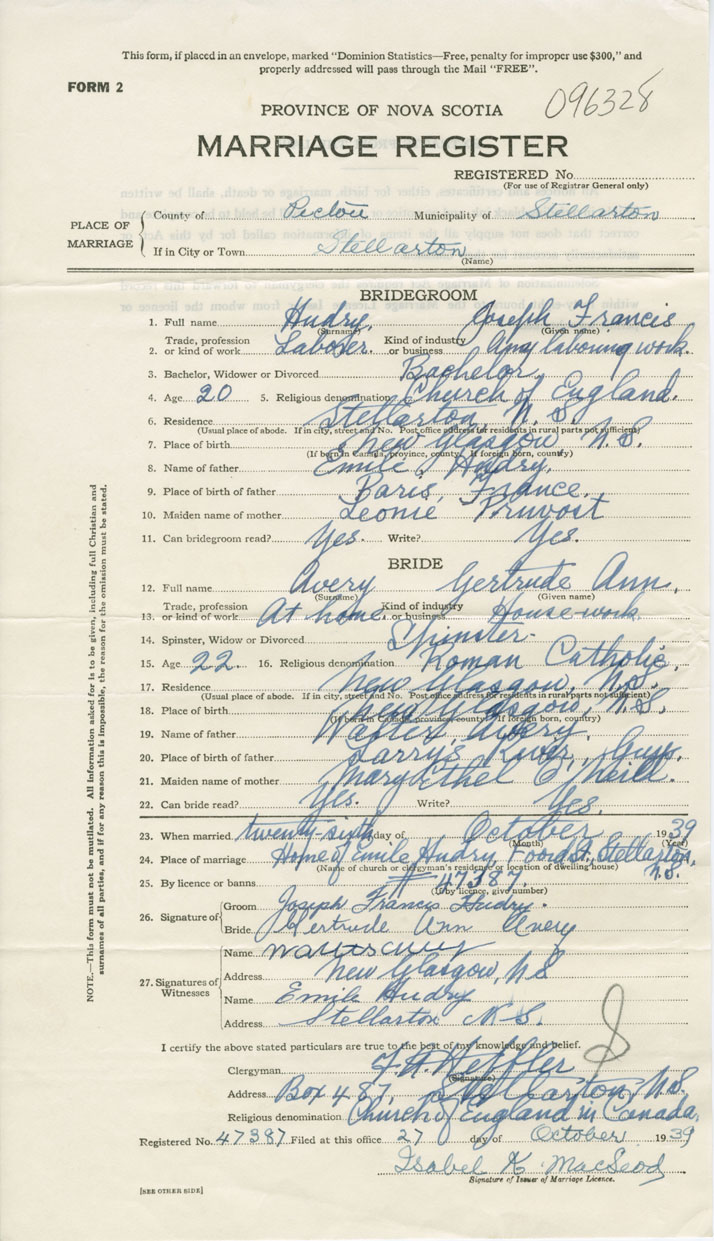 This form, if placed in an envelope, marked "Dominion Statistics—Free, penalty for improper use $300," and
properly addressed will pass through the Mail "FREE".
FORM 2
096328
PROVINCE OF NOVA SCOTIA
MARRIAGE REGISTER
REGISTERED No.
(For use of Registrar General only)
PLACE OF MARRIAGE
County of Pictou Municipality of Stellarton
If in City or Town Stellarton
(Name)
BRIDEGROOM
1. Full name Hudry, Joseph Francis
(Surname) (Given name)
Trade, profession Kind of industry
2. or kind of work Laborer. or business Any labouring work.
3. Bachelor, Widower or Divorced Bachelor
4. Age 20 5. Religious denomination Church of England.
6. Residence Stellarton, N.S.
(Usual place of abode. If in city, street and No. Post office address for residents in rural parts not sufficient)
7. Place of birth New Glasgow, N.S.
(If born in Canada, province, county. If foreign born, country)
8. Name of father Emile Hudry.
9. Place of birth of father Paris, France.
10. Maiden name of mother Leonie Pruvost
11. Can bridegroom read? Yes. Write? Yes.
BRIDE
12. Full name Avery Gertrude Ann.
(Surname) (Given name)
Trade, profession Kind of industry
13. or kind of work At home. or business House-work.
14. Spinster, Widow or Divorced Spinster-
15. Age 22. 16. Religious denomination Roman Catholic.
17. Residence New Glasgow, N.S.
(Usual place of abode. If in city, street and No. Post office address for residents in rural parts not sufficient)
18. Place of birth New Glasgow, N.S.
(If born in Canada, province, county. If foreign born, country)
19. Name of father Walter Avery.
20. Place of birth of father Larry's River, Guys.
21. Maiden name of mother Mary Ethel O'Neill.
22. Can bride read? Yes. Write? Yes.
23. When married twenty-sixth day of October 1939
(Month) (Year)
24. Place of marriage Home of Emile Hudry, Foord St. Stellarton, N.S.
(Name of church or clergyman's residence, or location of dwelling house)
25. By licence or banns # 47387.
(If by licence, give number)
26. Signature of
Groom Joseph Francis Hudry.
Bride Gertrude Ann Avery
27. Signatures of Witnesses
Name
Address New Glasgow, N S
Name Emile Hudry
Address Stellarton N.S.
I certify the above stated particulars are true to the best of my knowledge and belief.
Clergyman
(Signature)
Address Box 487, Stellarton, N.S.
Religious denomination Church of England in Canada,
Registered No. 47387 Filed at this office 27 day of October 1939
Isabel K. MacLeod
Signature of Issuer of Marriage Licence.
[SEE OTHER SIDE]
NOTE.—This form must not be mutilated. All information asked for is to be given, including full Christian and
surnames of all parties, and if for any reason this is impossible, the reason for the omission must be stated.